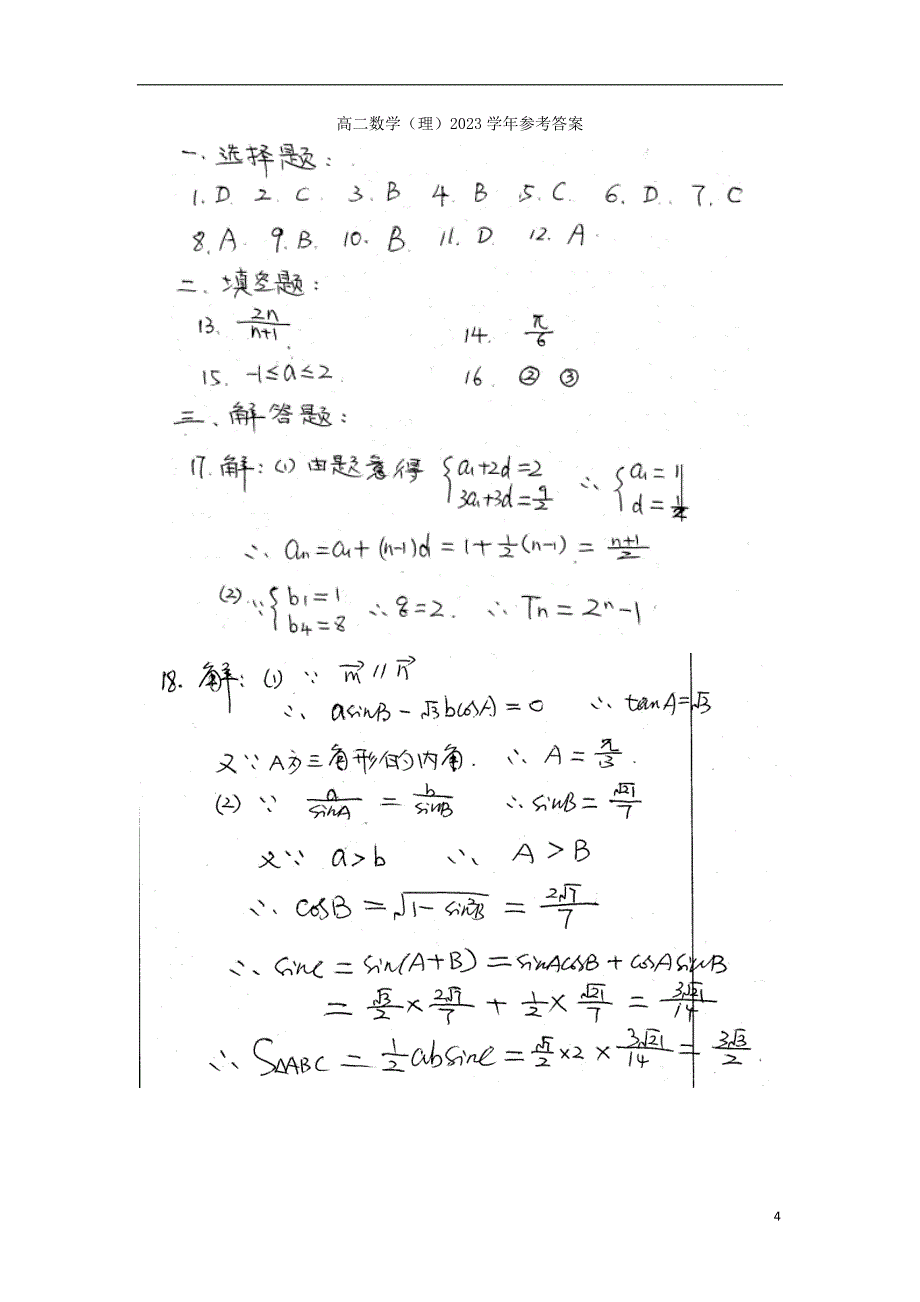 高二数学（理）2023 学年参考答案
一. 选择题：
1. D. 2. C. 3. B 4. B 5. C. 6. D. 7. C
8. A. 9. B. 10. B. 11. D. 12. A.
二、填空题：
13. 2n/(n+1) 14. π/6
15. -1≤a≤2. 16. ② ③
三、解答题：
17. 解：(1) 由题意得 {a₁+2d=2 3a₁+3d=9/2 ∴ {a₁=1 d=1/2
∴ an=a₁+(n-1)d=1+1/2(n-1)=(n+1)/2
(2) ∵ {b₁=1 b₄=8 ∴ q=2. ∴ Tn=2ⁿ-1
18. 解：(1) ∵ m⃗ // n⃗
∴ asinB-√3bcosA=0 ∴ tanA=√3
又∵ A为三角形的内角. ∴ A=π/3.
(2) ∵ a/sinA = b/sinB ∴ sinB=√21/7
又∵ a>b ∴ A>B
∴ cosB=√(1-sin²B)=2√7/7
∴ sinC=sin(A+B)=sinAcosB+cosAsinB
=√3/2×2√7/7+1/2×√21/7=3√21/14
∴ S△ABC=1/2absinC=√7/2×2×3√21/14=3√3/2.
4